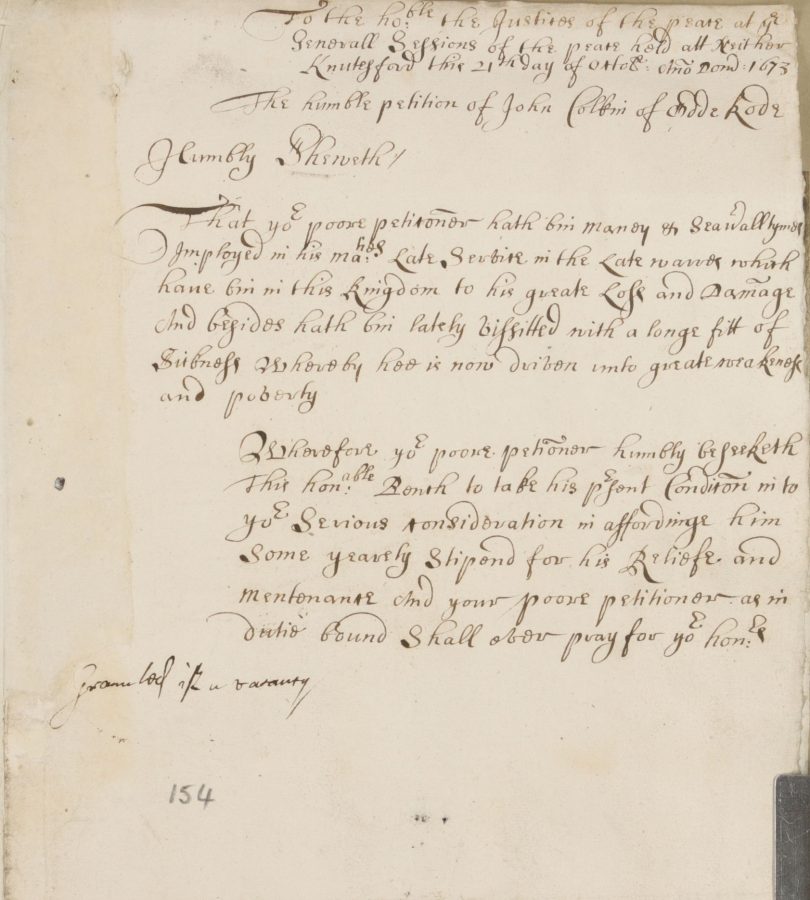 To the ho:ble the Justices of the peace at ye
Generall Sessions of the peace held att Neither
Knutesford this 21th day of Octob: Ano Dom: 1673
The humble petition of John Colkin of Odde Rode
Humbly Sheweth/
That yor poore petitioner hath bin maney & Seaverall tymes
Imployed in his mahes: Late Service in the Late warres which
have bin in this Kingdom to his greate Loss and Damage
And besides hath bin lately vissitted with a longe fitt of
Sickness Whereby hee is now driven into greate weakeness
and poverty
Wherefore yor poore petioner humbly beseeketh
This hon:able Bench to take his prsent Conditon in to
yor Serious consideration in affordinge him
Some yearely Stipend for his Reliefe and
mentenance And your poore petitioner as in
dutie bound Shall ever pray for yor hon:rs
graunted if a vacancy
154